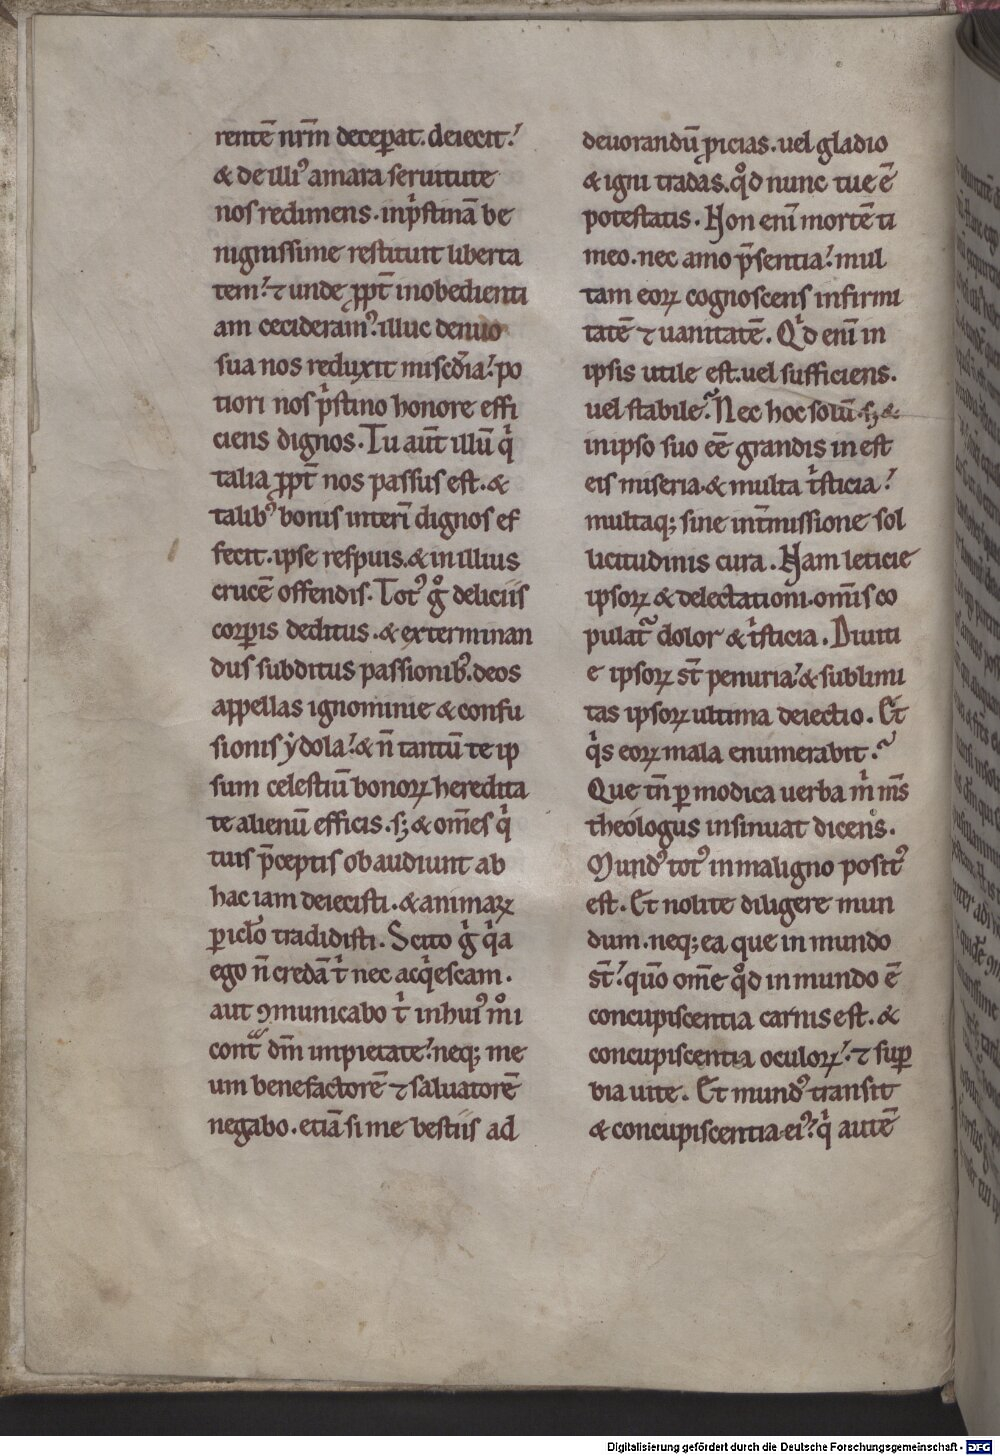 rentē nr̄m deceperat. deiecit!
& de illi᾽ amara seruitute
nos redimens. inpͥstinā be
nignissime restituit liberta
tem! ⁊ unde ꝓpt̄ inobedienti
am cecideram᾽! illuc denuo
sua nos reduxit misc̄dia! po
tiori nos pͥstino honore effi
ciens dignos. Tu aut̄ illū qͥ
talia ꝓpt̄ nos passus est. &
talib᾽ bonis interī dignos ef
fecit. ipse respuis. & in illius
crucē offendis. Tot᾽ gͦ deliciis
corꝑis deditus. & exterminan
dus subditus passionib᾽. deos
appellas ignominie & confu
sionis ẏdola! & n̄ tantū te ip
sum celestiū bonoꝝ heredita
te alienū efficis. sꝫ & om̄es qͥ
tuis p̄ceptis obaudiunt ab
hac iam deiecisti. & animaꝝ
ꝑicl̄o tradidisti. Scito gͥ qͥa
ego n̄ credā tͥ nec acqͥescam.
aut ꝯmunicabo tͥ in hui᾽ mͦi
cont̄ dm̄ impietate! neqꝫ me
um benefactorē ⁊ saluatorē
negabo. etiā si me bestiis ad
deuorandū ꝓicias. uel gladio
& igni tradas. qͦd nunc tue ē
potestatis. Non enī mortē ti
meo. nec amo p̄sentia! mul
tam eoꝝ cognoscens infirmi
tatē ⁊ uanitatē. Qͥd enī in
ipsis utile est. uel sufficiens.
uel stabile? Nec hoc solū. sꝫ &
in ipso suo eē grandis inest
eis miseria. & multa tͥsticia!
multaqꝫ sine int̄missione sol
licitudinis cura. Nam leticie
ipsoꝝ & delectationi. om̄is co
pulat᷑ dolor & tͥsticia. Diuiti
e ipsoꝝ st̄ penuria! & sublimi
tas ipsoꝝ ultima deiectio. Et
qͥs eoꝝ mala enumerabit?
Que tn̄ ꝑ modica uerba mͥ m̄s
theologus insinuat dicens.
Mund᾽ tot᾽ in maligno posit᾽
est. Et nolite diligere mun
dum. neqꝫ ea que in mundo
st̄! quō om̄e qͦd in mundo ē
concupiscentia carnis est. &
concupiscentia oculoꝝ! ⁊ suꝑ
bia uite. Et mund᾽ transit
& concupiscentia ei᾽! qͥ autē
Digitalisierung gefördert durch die Deutsche Forschungsgemeinschaft - DFG